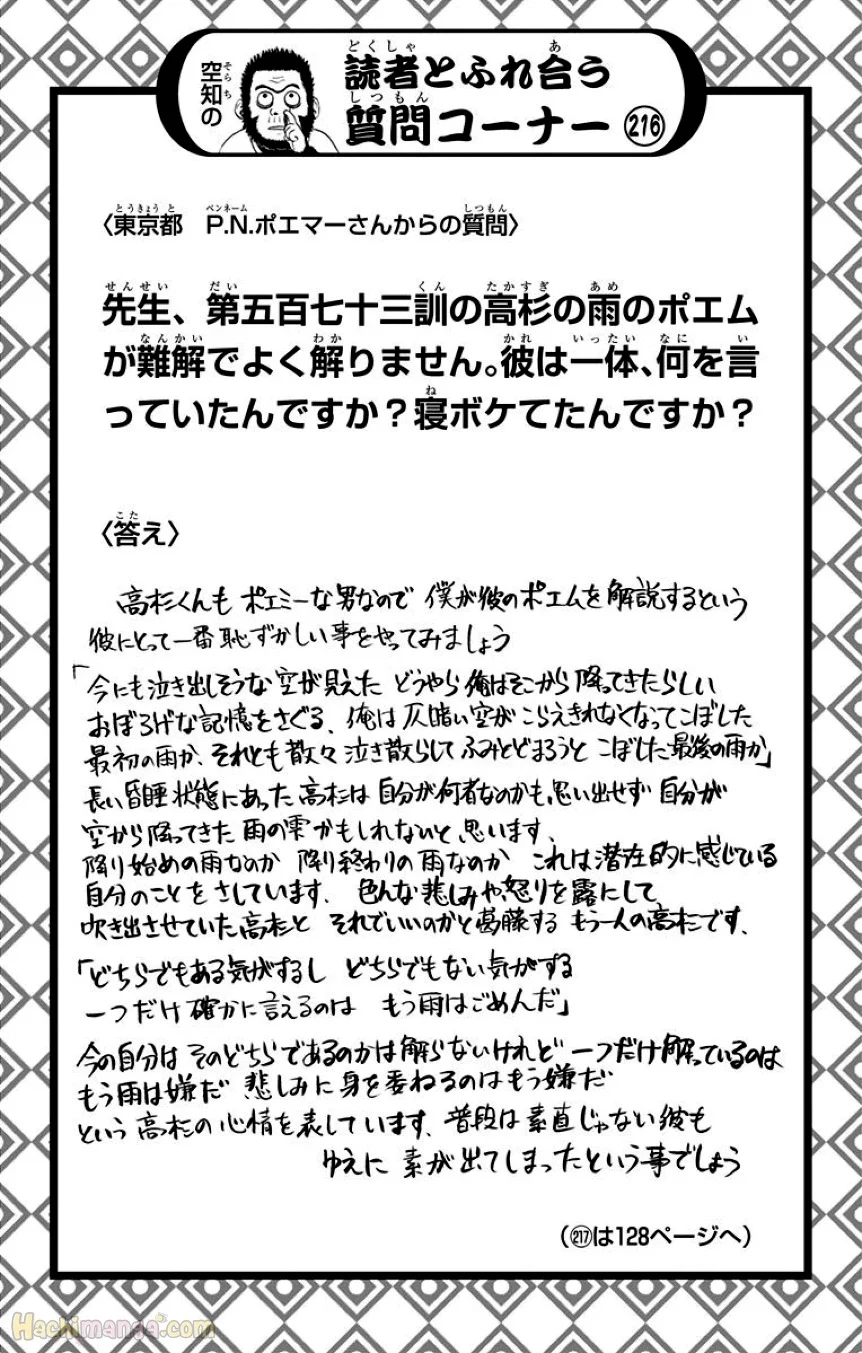 空知の
読者とふれ合う
質問コーナー 216
〈東京都　P.N.ポエマーさんからの質問〉
先生、第五百七十三訓の高杉の雨のポエム
が難解でよく解りません。彼は一体、何を言
っていたんですか？寝ボケてたんですか？
〈答え〉
高杉くんも ポエミーな男なので 僕が彼のポエムを解説するという
彼にとって一番恥ずかしい事をやってみましょう
「今にも泣き出しそうな空が見えた どうやら俺はそこから降ってきたらしい
おぼろげな記憶をさぐる、俺は仄暗い空がこらえきれなくなってこぼした
最初の雨か、それとも散々泣き散らしてふみとどまろうと こぼした最後の雨か」
長い昏睡状態にあった高杉は 自分が何者なのかも思い出せず 自分が
空から降ってきた雨の雫かもしれないと思います、
降り始めの雨なのか 降り終わりの雨なのか これは潜在的に感じている
自分のことをさしています、色んな悲しみや怒りを露にして
吹き出させていた高杉と それでいいのかと葛藤する もう一人の高杉です、
「どちらでもある気がするし どちらでもない気がする
一つだけ確かに言えるのは もう雨はごめんだ」
今の自分は そのどちらであるのかは解らないけれど 一つだけ解っているのは
もう雨は嫌だ 悲しみに身を委ねるのはもう嫌だ
という高杉の心情を表しています、普段は素直じゃない彼も
ゆえに 素が出てしまったという事でしょう
(217は128ページへ)
Hachimanga.com